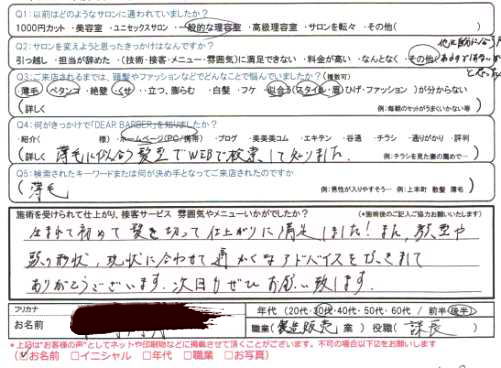 Q1:以前はどのようなサロンに通われていましたか?
1000円カット ・美容室 ・ユニセックスサロン ・一般的な理容室 ・高級理容室 ・サロンを転々 ・その他(
Q2:サロンを変えようと思ったきっかけはなんですか?
引っ越し ・担当が辞めた ・(技術・接客・メニュー・雰囲気)に満足できない ・料金が高い ・なんとなく ・その他(
Q3:ご来店されるまでは、頭髪やファッションなどでどんなことで悩んでいましたか?(複数可)
薄毛 ・ペタンコ ・絶壁 ・くせ ・立つ、膨らむ ・白髪 ・フケ ・似合う(スタイル・眉・ひげ・ファッション)が分からない
(詳しく 例:毎朝のセットがうまくいかない等 )
Q4:何がきっかけで「DEAR BARBER」を知りましたか?
・紹介( 様) ・ホームページ(PC/携帯) ・ブログ ・美美美コム ・エキテン ・谷通 ・チラシ ・通りがかり ・評判
(詳しく 薄毛に似合う髪型でWEBで検索して知りました. 例:チラシを見た妻の薦めで… )
Q5:検索されたキーワードまたは何が決め手となってご来店されたのですか
薄毛 例:男性が入りやすそう… 例:上本町 散髪 薄毛 )
施術を受けられて仕上がり、接客サービス 雰囲気やメニューいかがでしたか? (*施術後のご記入ご協力お願いします)
生まれて初めて髪を切って仕上がりに満足しました!また、教型や
頭の形状、現状に合わせて アドバイスを
ありがとうございます. 次回もぜひお願い致します.
フリカナ
お名前
年代 (20代・30代・40代・50代・60代 / 前半・後半)
職業(製造販売 業) 役職( 課長 )
*上記は"お客様の声"としてネットや印刷物などに掲載させて頂くことがございます。不可の場合以下○をお願いします
(☑お名前 □イニシャル □年代 □職業 □お写真)